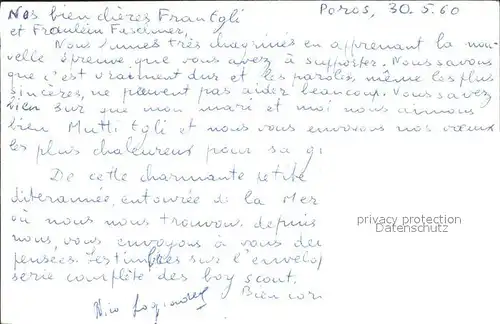 Poros, 30.5.60
Nos bien chères Frau Egli
et Fräulein
Nous sommes très chagrinés en apprenant la nou
velle épreuve que vous avez à supporter. Nous savons
que c'est vraiment dur et les paroles, même les plus
sincères, ne peuvent pas aider beaucoup. Vous savez
bien sur que mon mari et moi nous aimons
bien Mutti Egli et nous vous envoyons nos vœux
les plus chaleureux pour sa g
De cette charmante petite
diterannée, entourée de la Mer
où nous nous trouvons depuis
nous, vous envoyons à vous deu
pensées. Les timbres sur l'envelop
serie complète des boy scout.
Bien cor
Nico
privacy protection
Datenschutz